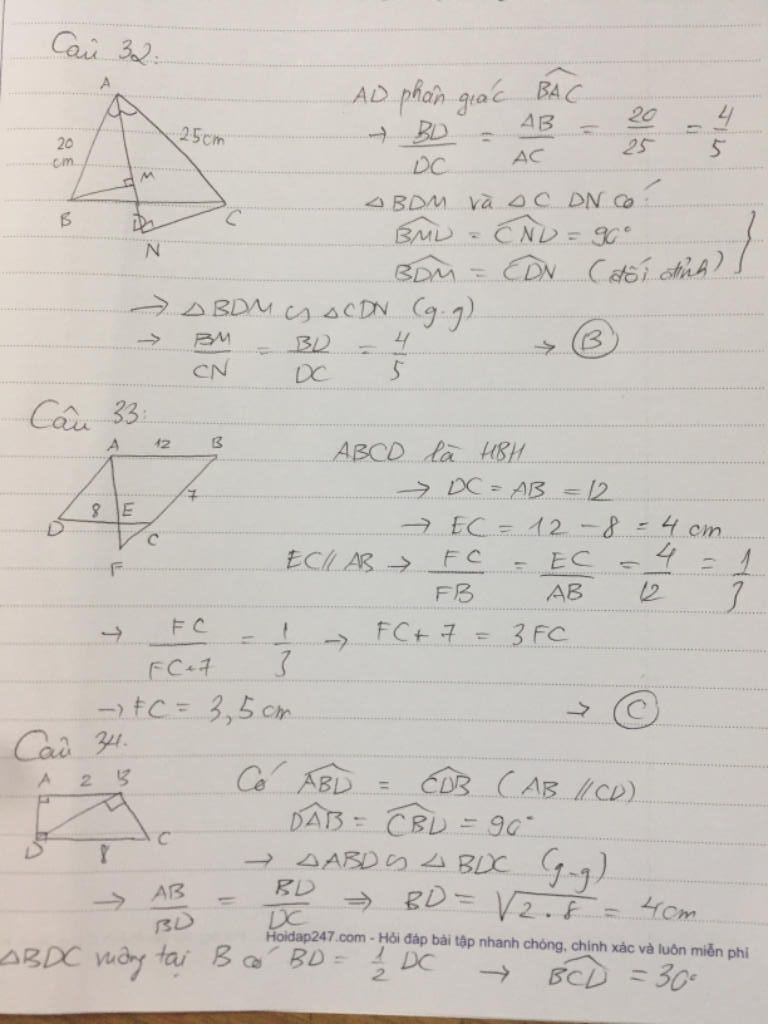 Câu 32:
A
20 cm
25cm
M
B
D
C
N
AD phân giác \widehat{BAC}
→ BD/DC = AB/AC = 20/25 = 4/5
△BDM và △CDN có:
\widehat{BMD} = \widehat{CND} = 90°
\widehat{BDM} = \widehat{CDN} (đối đỉnh) }
→ △BDM ∽ △CDN (g.g)
→ BM/CN = BD/DC = 4/5 → Ⓑ
Câu 33:
A 12 B
7
D 8 E
C
F
ABCD là HBH
→ DC = AB = 12
→ EC = 12 - 8 = 4 cm
EC // AB → FC/FB = EC/AB = 4/12 = 1/3
→ FC/(FC+7) = 1/3 → FC + 7 = 3FC
→ FC = 3,5 cm → Ⓒ
Câu 34.
A 2 B
D 8 C
Có \widehat{ABD} = \widehat{CDB} (AB // CD)
\widehat{DAB} = \widehat{CBD} = 90°
→ △ABD ∽ △BDC (g-g)
→ AB/BD = BD/DC ⇒ BD = √(2.8) = 4cm
Hoidap247.com - Hỏi đáp bài tập nhanh chóng, chính xác và luôn miễn phí
△BDC vuông tại B có BD = 1/2 DC → \widehat{BCD} = 30°